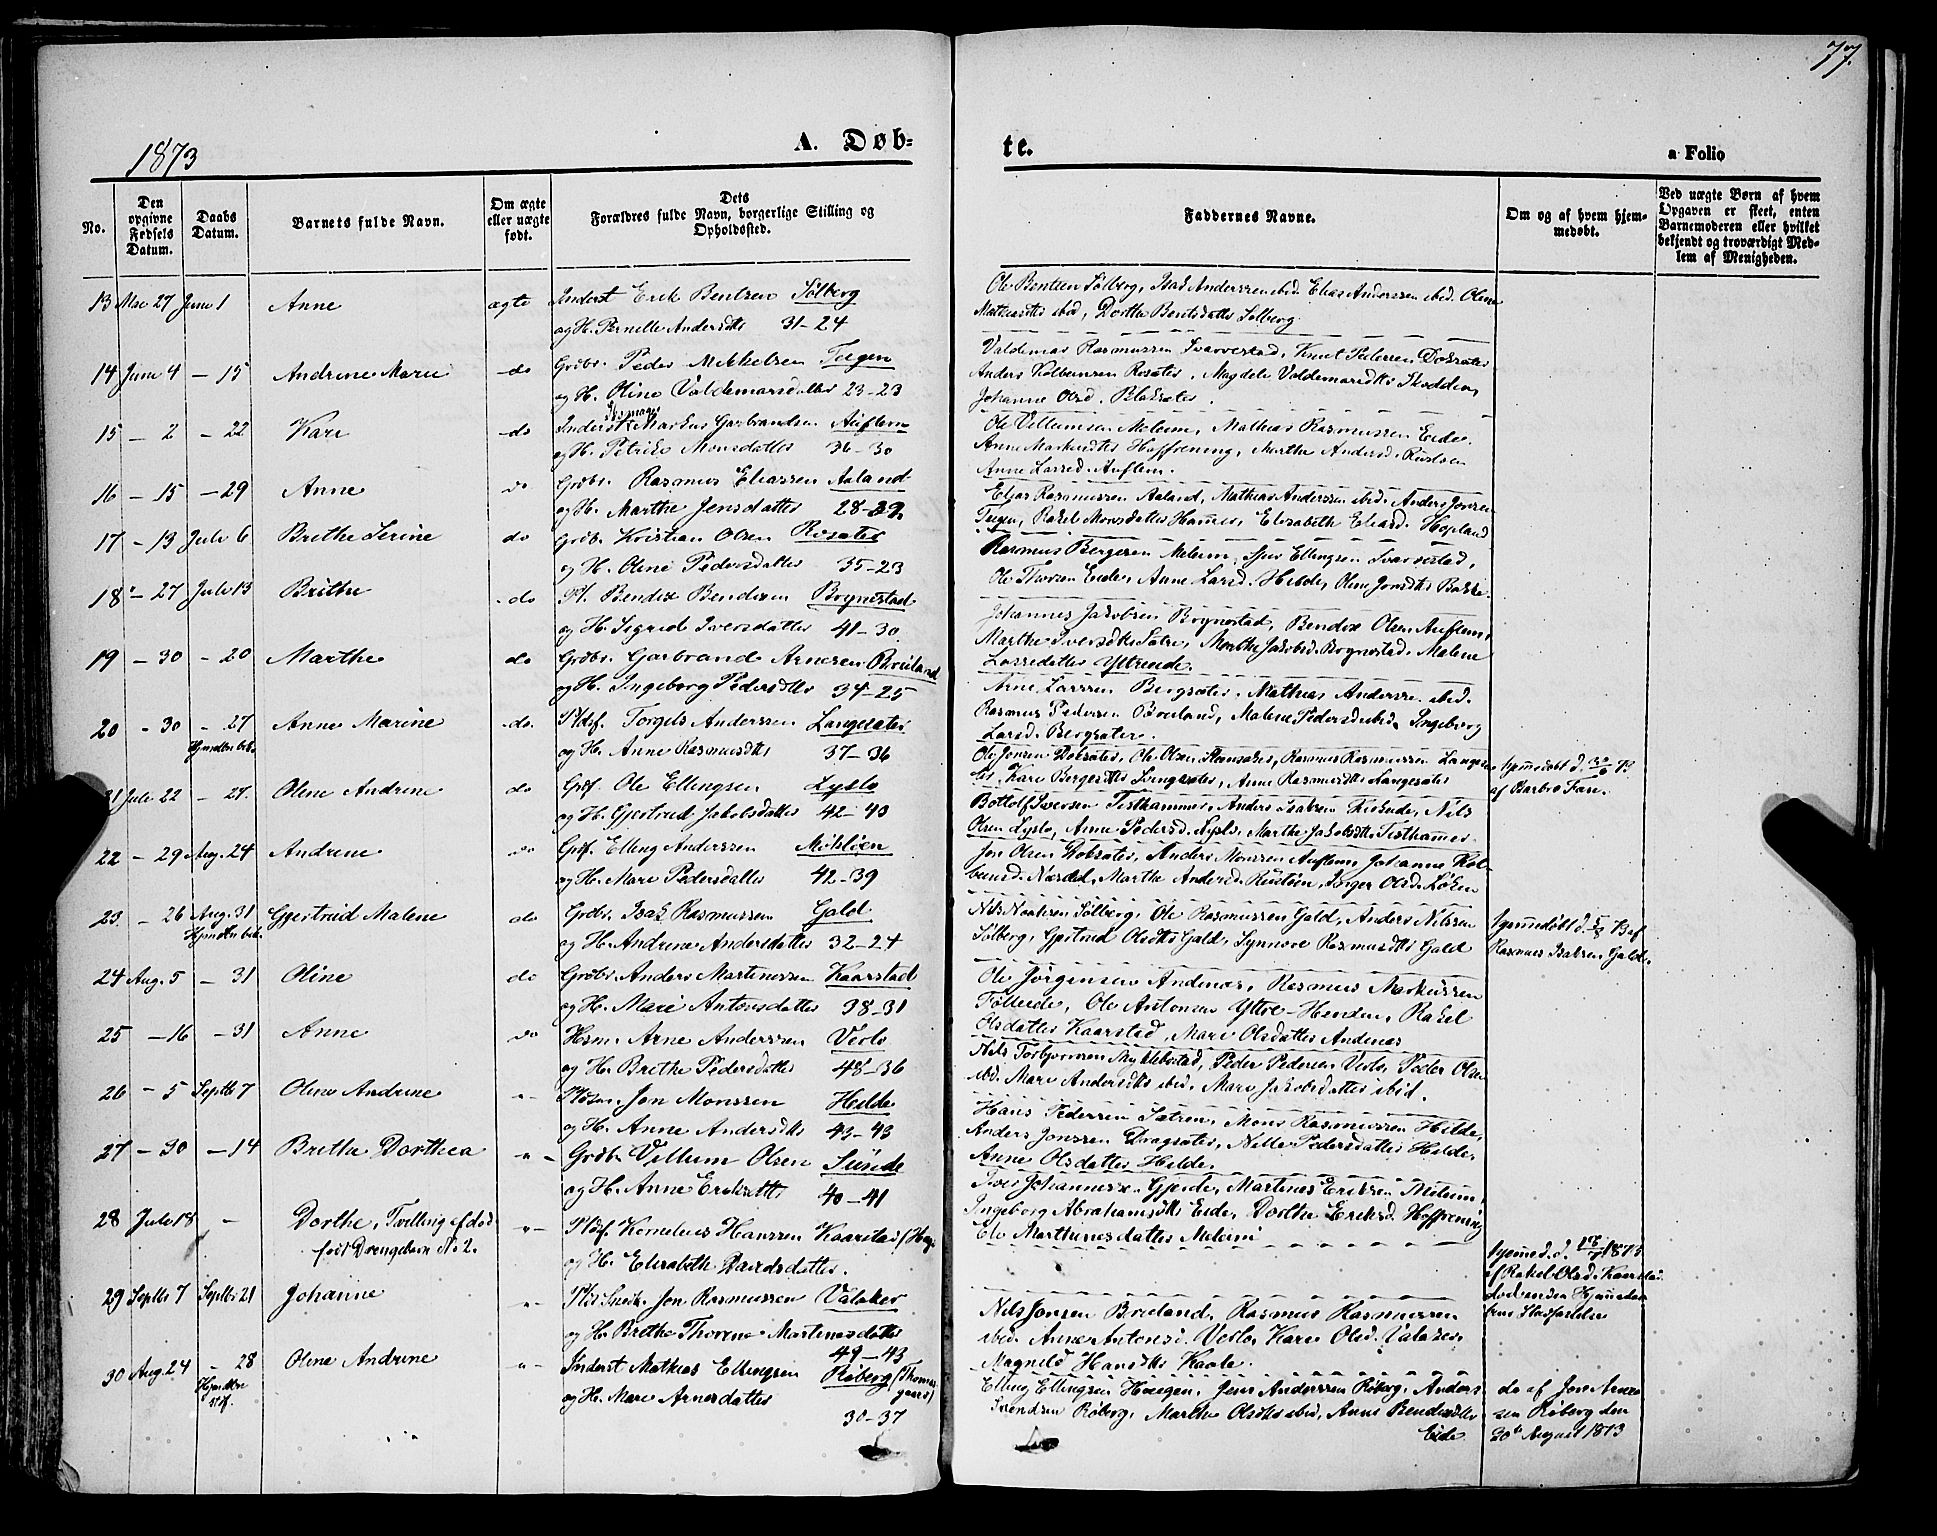 77.
1873
A. Døb-
te.
a Folio
No.
Den opgivne Fødsels Datum.
Daabs Datum.
Barnets fulde Navn.
Om ægte eller uægte født.
Dets Forældres fulde Navn, borgerlige Stilling og Opholdssted.
Faddernes Navne.
Om og af hvem hjemmedøbt.
Ved uægte Børn af hvem Opgaven er skeet, enten Barnemoderen eller hvilket bekjendt og troværdigt Medlem af Menigheden.
13 Mai 27 Juni 1 Anne ægte Inderst Erik Bentsen Sølberg
og H. Pernille Andersdtr 31-24
Ole Bentsen Sølberg, Isak Anderssen ibid. Elias Anderssen ibid. Oline
Mathiasdtr ibid, Dorthe Bentsdatter Sølberg.
14 Juni 4 - 15 Andrine Marie do Grdbr. Peder Mikkelsen Teigen
og H. Oline Valdemarsdatter 23-23
Valdemar Rasmussen Svarvestad, Knut Pedersen Doksæter
Anders Kolbeinsen Rosæter, Magdele Valdemarsdtr Skodden,
Johanne Olsd. Blaksæter.
15 - 2 - 22 Kari do Inderst Markus Garbrandsen Auflem
og H. Petrike Monsdatter 36-30
Ole Villumsen Meleim, Mathias Rasmussen Eide.
Anne Markusdtr Hoffrening, Marthe Andersd. Rustøen
Anne Larsd. Auflem.
16 - 15 - 29 Anne do Grdbr. Rasmus Eliassen Aaland
og H. Marthe Jensdatter 28-29.
Elias Rasmussen Aaland, Mathias Anderssen ibid. Anders Jonsen
Teigen, Rakel Monsdatter Hammer, Elisabeth Eliasd. Hopland
17 - 13 Juli 6 Brithe Serine do Grdbr. Kristian Olsen Rosæter
og H. Oline Pedersdatter 35-23
Rasmus Bergesen Meleim, Sjur Ellingsen Svarvestad,
Ole Thorsen Eide, Anne Larsd. Hilde, Oline Jonsdtr Bakke.
18 - 27 Juli 13 Brithe do Pl. Bendix Bendixen Bognestad
og H. Sigrid Iversdatter 41-30.
Johannes Jakobsen Bognestad, Bendix Olsen Auflem,
Marthe Iversdtr Sætre, Marthe Jakobsd. Bognestad, Malene
Larsdatter Yttreeide.
19 - 30 - 20 Marthe do Grdbr. Garbrand Arnesen Breiland
og H. Ingeborg Pedersdtr 34-25
Arne Larsen Bergsæter, Mathias Anderssen ibid.
Rasmus Pedersen Breiland, Malene Pedersd. ibid. Ingeborg
Larsd. Bergsæter.
20 - 30 - 27 Anne Marine do Pldsf. Torgels Anderssen Langesæter
og H. Anne Rasmusdtr 37-36
Ole Jonsen Doksæter, Ole Olsen Rasmus Rasmussen Langesæ-
ter, Kari Bergesdtr Langesæter, Anne Rasmusdtr Langesæter
hjemmedøbt d. 30/6 73
af Barbro Faen.
21 Juli 22 - 27. Oline Andrine do Grdf. Ole Ellingsen Lyslo
og H. Gjertrud Jakobsdatter 42-43
Bottolf Iversen Tisthammer, Anders Isaksen Nils
Olsen Lyslo, Anne Pedersd. Lyslo, Marthe Jakobsdtr Tisthammer.
22 - 29 Aug. 24 Andrine do Grdf. Elling Anderssen Mikløen
og H. Mari Pedersdatter 42-39
Jon Olsen Doksæter, Anders Monssen Auflem, Johanne Kol-
beinsd. Marthe Andersd. Rustøen, Olsd. Løken
23. - 26 Aug. 31 Gjertrud Malene do Grdbr. Isak Rasmussen Gald
og H. Andrine Andersdatter 32-24
Nils Sølberg, Ole Rasmussen Gald, Anders Nilssen
Sølberg, Gjertrud Olsdtr Gald, Synnove Rasmusdtr Gald
hjemmedøbt d. 5/8 73 af
Rasmus Isaksen Galde.
24 Aug. 5 - 31 Oline do Grdbr. Anders Martinussen Kaarstad
og H. Mari Antonsdatter 38-31
Ole Jørgensen Andenæs, Rasmus Markussen
Følleide, Ole Antonsen Ytre-Henden, Rakel
Olsdatter Kaarstad, Mari Olsdatter Andenæs
25 - 16 - 31 Anne do Hsm. Arne Anderssen Verlo
og H. Brithe Pedersdatter 48-36
Nils Torbjørnsen Myklebostad, Peder Pedersen Verlo, Peder Olsen
ibid. Mari Andersdtr ibid. Mari Jakobsdatter ibid.
26 - 5 Septbr 7 Oline Andrine Jon Monssen Hilde
og H. Anne Andersdtr 43-43
Hans Pedersen Sætren, Mons Rasmussen Hilde,
Anders Jonssen Dragsæter, Nille Pedersdatter Hilde,
Anne Olsdatter Hilde.
27 - 30 - 14 Brithe Dorthea Grdbr. Villum Olsen Sunde
og H. Anne Eriksdtr 40-41
Iver Johannessen Gjerde, Martinus Eriksen Meleim,
Ingeborg Abrahamsdtr Eide, Dorthe Eriksd. Hoffrening
Eli Marthinusdatter Meleim
28 Juli 18 - Dorthe, Tvilling af død-
født Drengebarn No 2.
Pldsf. Kornelius Hanssen Kaarstad
og H. Elisabeth Davidsdatter.
hjemmed. d. 18/7 1873
af Rakel Olsd. Kaarstad
29 Septbr 7 Septbr 21 Johanne Jon Rasmussen Valaker
og H. Brithe Thorine Martinusdatter
49-43
Nils Jonsen Breiland, Rasmus Rasmussen
ibid. Anne Antonsd. Verlo, Kari Olsd. Valaker,
Magnild Hansdtr Kaale.
30 Aug. 24 - 28 Oline Andrine Inderst Mathias Ellingsen Røberg
og H. Mari Arnesdatter
30-37
Elling Ellingsen Haugen, Jens Anderssen Røberg, Anders
Svendsen Røberg, Marthe Olsdtr ibid, Anne Bendixdtr
Eide.
do af Jon Arne-
sen Røberg den
30te August 1873